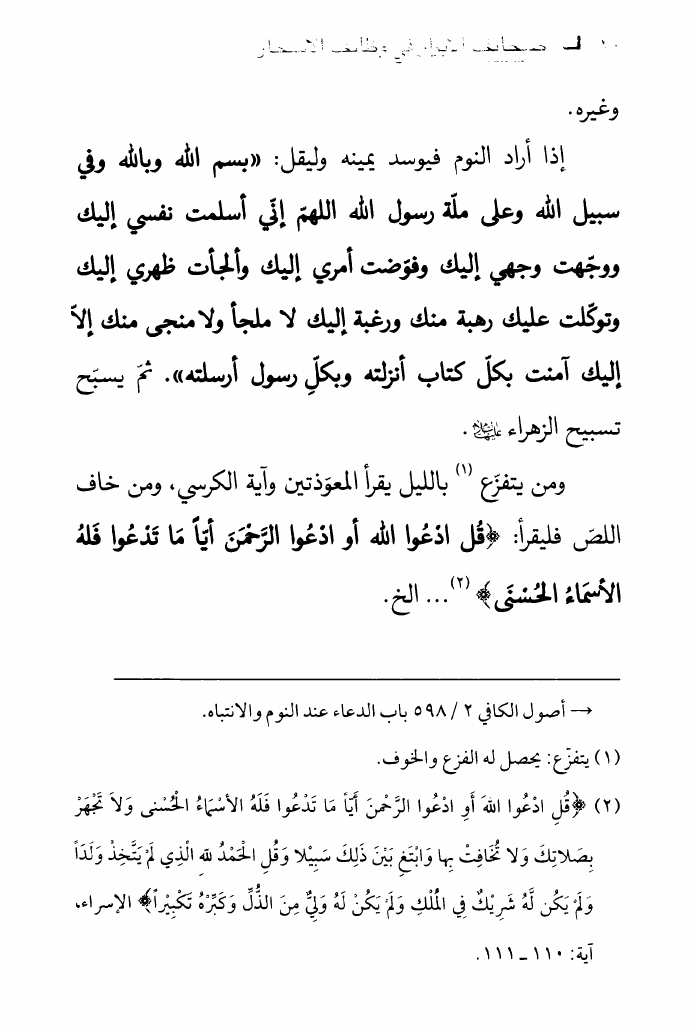 ١٠ ـ صحايف الابرار في وظايف الاسحار
وغيره.
إذا أراد النوم فيوسد يمينه وليقل: «بسم الله وبالله وفي
سبيل الله وعلى ملّة رسول الله اللهمّ إنّي أسلمت نفسي إليك
ووجّهت وجهي إليك وفوّضت أمري إليك وألجأت ظهري إليك
وتوكّلت عليك رهبة منك ورغبة إليك لا ملجأ ولا منجى منك إلاّ
إليك آمنت بكلّ كتاب أنزلته وبكلِّ رسول أرسلته». ثمّ يسبّح
تسبيح الزهراء عليها السلام.
ومن يتفزّع (١) بالليل يقرأ المعوّذتين وآية الكرسي، ومن خاف
اللصّ فليقرأ: ﴿قُل ادْعُوا الله أو ادْعُوا الرَّحْمَنَ أيّاً مَا تَدْعُوا فَلهُ
الأسمَاءُ الحُسْنَى﴾ (٢)... الخ.
→ أصول الكافي ٢ / ٥٩٨ باب الدعاء عند النوم والانتباه.
(١) يتفزّع: يحصل له الفزع والخوف.
(٢) ﴿قُلِ ادْعُوا اللهَ أَوِ ادْعُوا الرَّحْمنَ أَيّاً مَا تَدْعُوا فَلَهُ الأسْمَاءُ الْحُسْنى وَلاَ تَجْهَرْ
بِصَلاتِكَ وَلا تُخَافِتْ بِها وَابْتَغِ بَيْنَ ذَلِكَ سَبِيْلا وَقُلِ الْحَمْدُ للهِ الَّذِي لَمْ يَتَّخِذْ وَلَدَاً
وَلَمْ يَكُن لَّهُ شَرِيْكٌ فِي الْمُلْكِ وَلَمْ يَكُنْ لَهُ وَلِيٌّ مِنَ الذُّلِّ وَكَبِّرْهُ تَكْبِيْراً﴾ الإسراء،
آية: ١١٠ ـ ١١١.